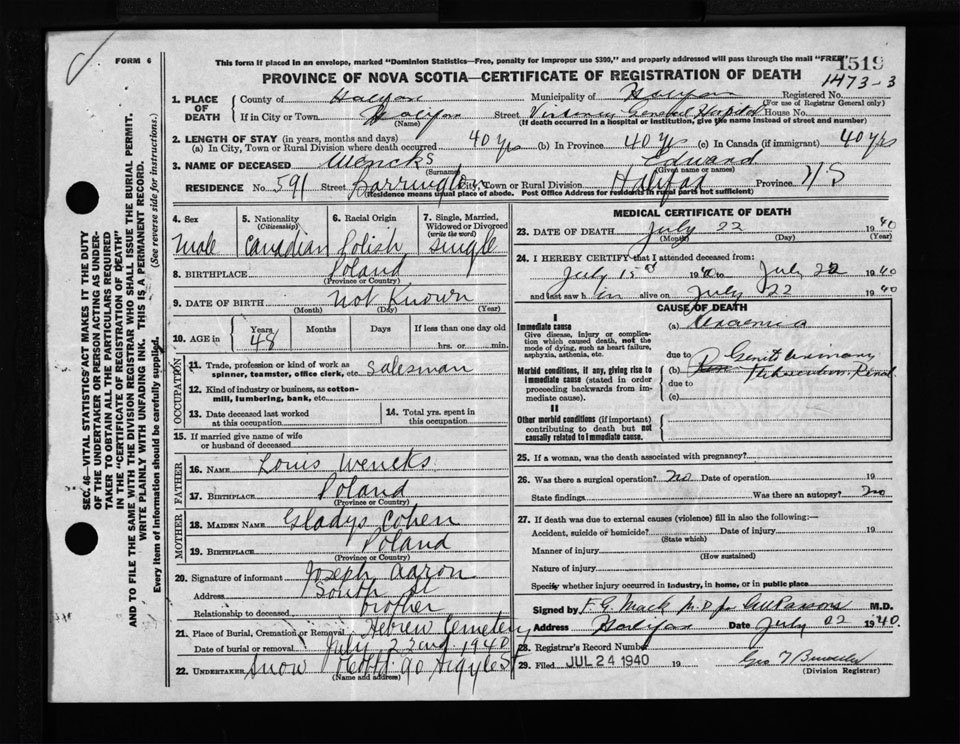 FORM 6
This form if placed in an envelope, marked "Dominion Statistics—Free, penalty for improper use $300," and properly addressed will pass through the mail "FREE"
1519
PROVINCE OF NOVA SCOTIA—CERTIFICATE OF REGISTRATION OF DEATH
1473-3
1. PLACE OF DEATH
County of Halifax Municipality of Halifax Registered No.
(For use of Registrar General only)
If in City or Town Halifax Street Victoria General Hospital House No.
(Name) (If death occurred in a hospital or institution, give the name instead of street and number)
2. LENGTH OF STAY (in years, months and days)
(a) In City, Town or Rural Division where death occurred 40 yrs (b) In Province 40 yrs (c) In Canada (if immigrant) 40 yrs
3. NAME OF DECEASED Wencks Edward
(Surname) (Given name or names)
RESIDENCE No. 591 Street Barrington City, Town or Rural Division Halifax Province NS
(Residence means usual place of abode. Post Office Address for residents in rural parts not sufficient)
4. Sex
male
5. Nationality
(Citizenship)
Canadian
6. Racial Origin
Polish
7. Single, Married, Widowed or Divorced
(write the word)
single
8. BIRTHPLACE Poland
(Province or Country)
9. DATE OF BIRTH Not Known
(Month) (Day) (Year)
10. AGE in
Years Months Days If less than one day old
48 hrs. or min.
OCCUPATION
11. Trade, profession or kind of work as
spinner, teamster, office clerk, etc. Salesman
12. Kind of industry or business, as cotton-
mill, lumbering, bank, etc.
13. Date deceased last worked
at this occupation
14. Total yrs. spent in
this occupation
15. If married give name of wife
or husband of deceased
FATHER
16. NAME Louis Wencks
17. BIRTHPLACE Poland
(Province or Country)
MOTHER
18. MAIDEN NAME Gladys Cohen
19. BIRTHPLACE Poland
(Province or Country)
20. Signature of informant Joseph Aaron
Address South St
Relationship to deceased brother
21. Place of Burial, Cremation or Removal Hebrew Cemetery
Date of burial or removal July 22nd 1940
22. UNDERTAKER Snow 90 Argyle St
(Name and address)
MEDICAL CERTIFICATE OF DEATH
23. DATE OF DEATH July 22 1940
(Month) (Day) (Year)
24. I HEREBY CERTIFY that I attended deceased from:
July 15 to July 22 1940
and last saw him alive on July 22 1940
CAUSE OF DEATH
I
Immediate cause
Give disease, injury or complication which caused death, not the mode of dying, such as heart failure, asphyxia, asthenia, etc.
(a) Uraemia
due to
Morbid conditions, if any, giving rise to immediate cause (stated in order proceeding backwards from immediate cause).
(b) Genito Urinary
due to Renal
(c)
II
Other morbid conditions (if important) contributing to death but not causally related to immediate cause.
25. If a woman, was the death associated with pregnancy?
26. Was there a surgical operation? no Date of operation 19
State findings Was there an autopsy? no
27. If death was due to external causes (violence) fill in also the following:—
Accident, suicide or homicide? Date of injury 19
(State which)
Manner of injury
(How sustained)
Nature of injury
Specify whether injury occurred in Industry, in home, or in public place
Signed by F. G. Mack M.D. for M.D.
Address Halifax Date July 22 1940.
28. Registrar's Record Number
29. Filed JUL 24 1940 19
(Division Registrar)
SEC. 46—VITAL STATISTICS ACT MAKES IT THE DUTY
OF THE UNDERTAKER OR PERSON ACTING AS UNDER-
TAKER TO OBTAIN ALL THE PARTICULARS REQUIRED
IN THE "CERTIFICATE OF REGISTRATION OF DEATH"
AND TO FILE THE SAME WITH THE DIVISION REGISTRAR WHO SHALL ISSUE THE BURIAL PERMIT.
WRITE PLAINLY WITH UNFADING INK. THIS IS A PERMANENT RECORD.
Every item of information should be carefully supplied. (See reverse side for instructions.)